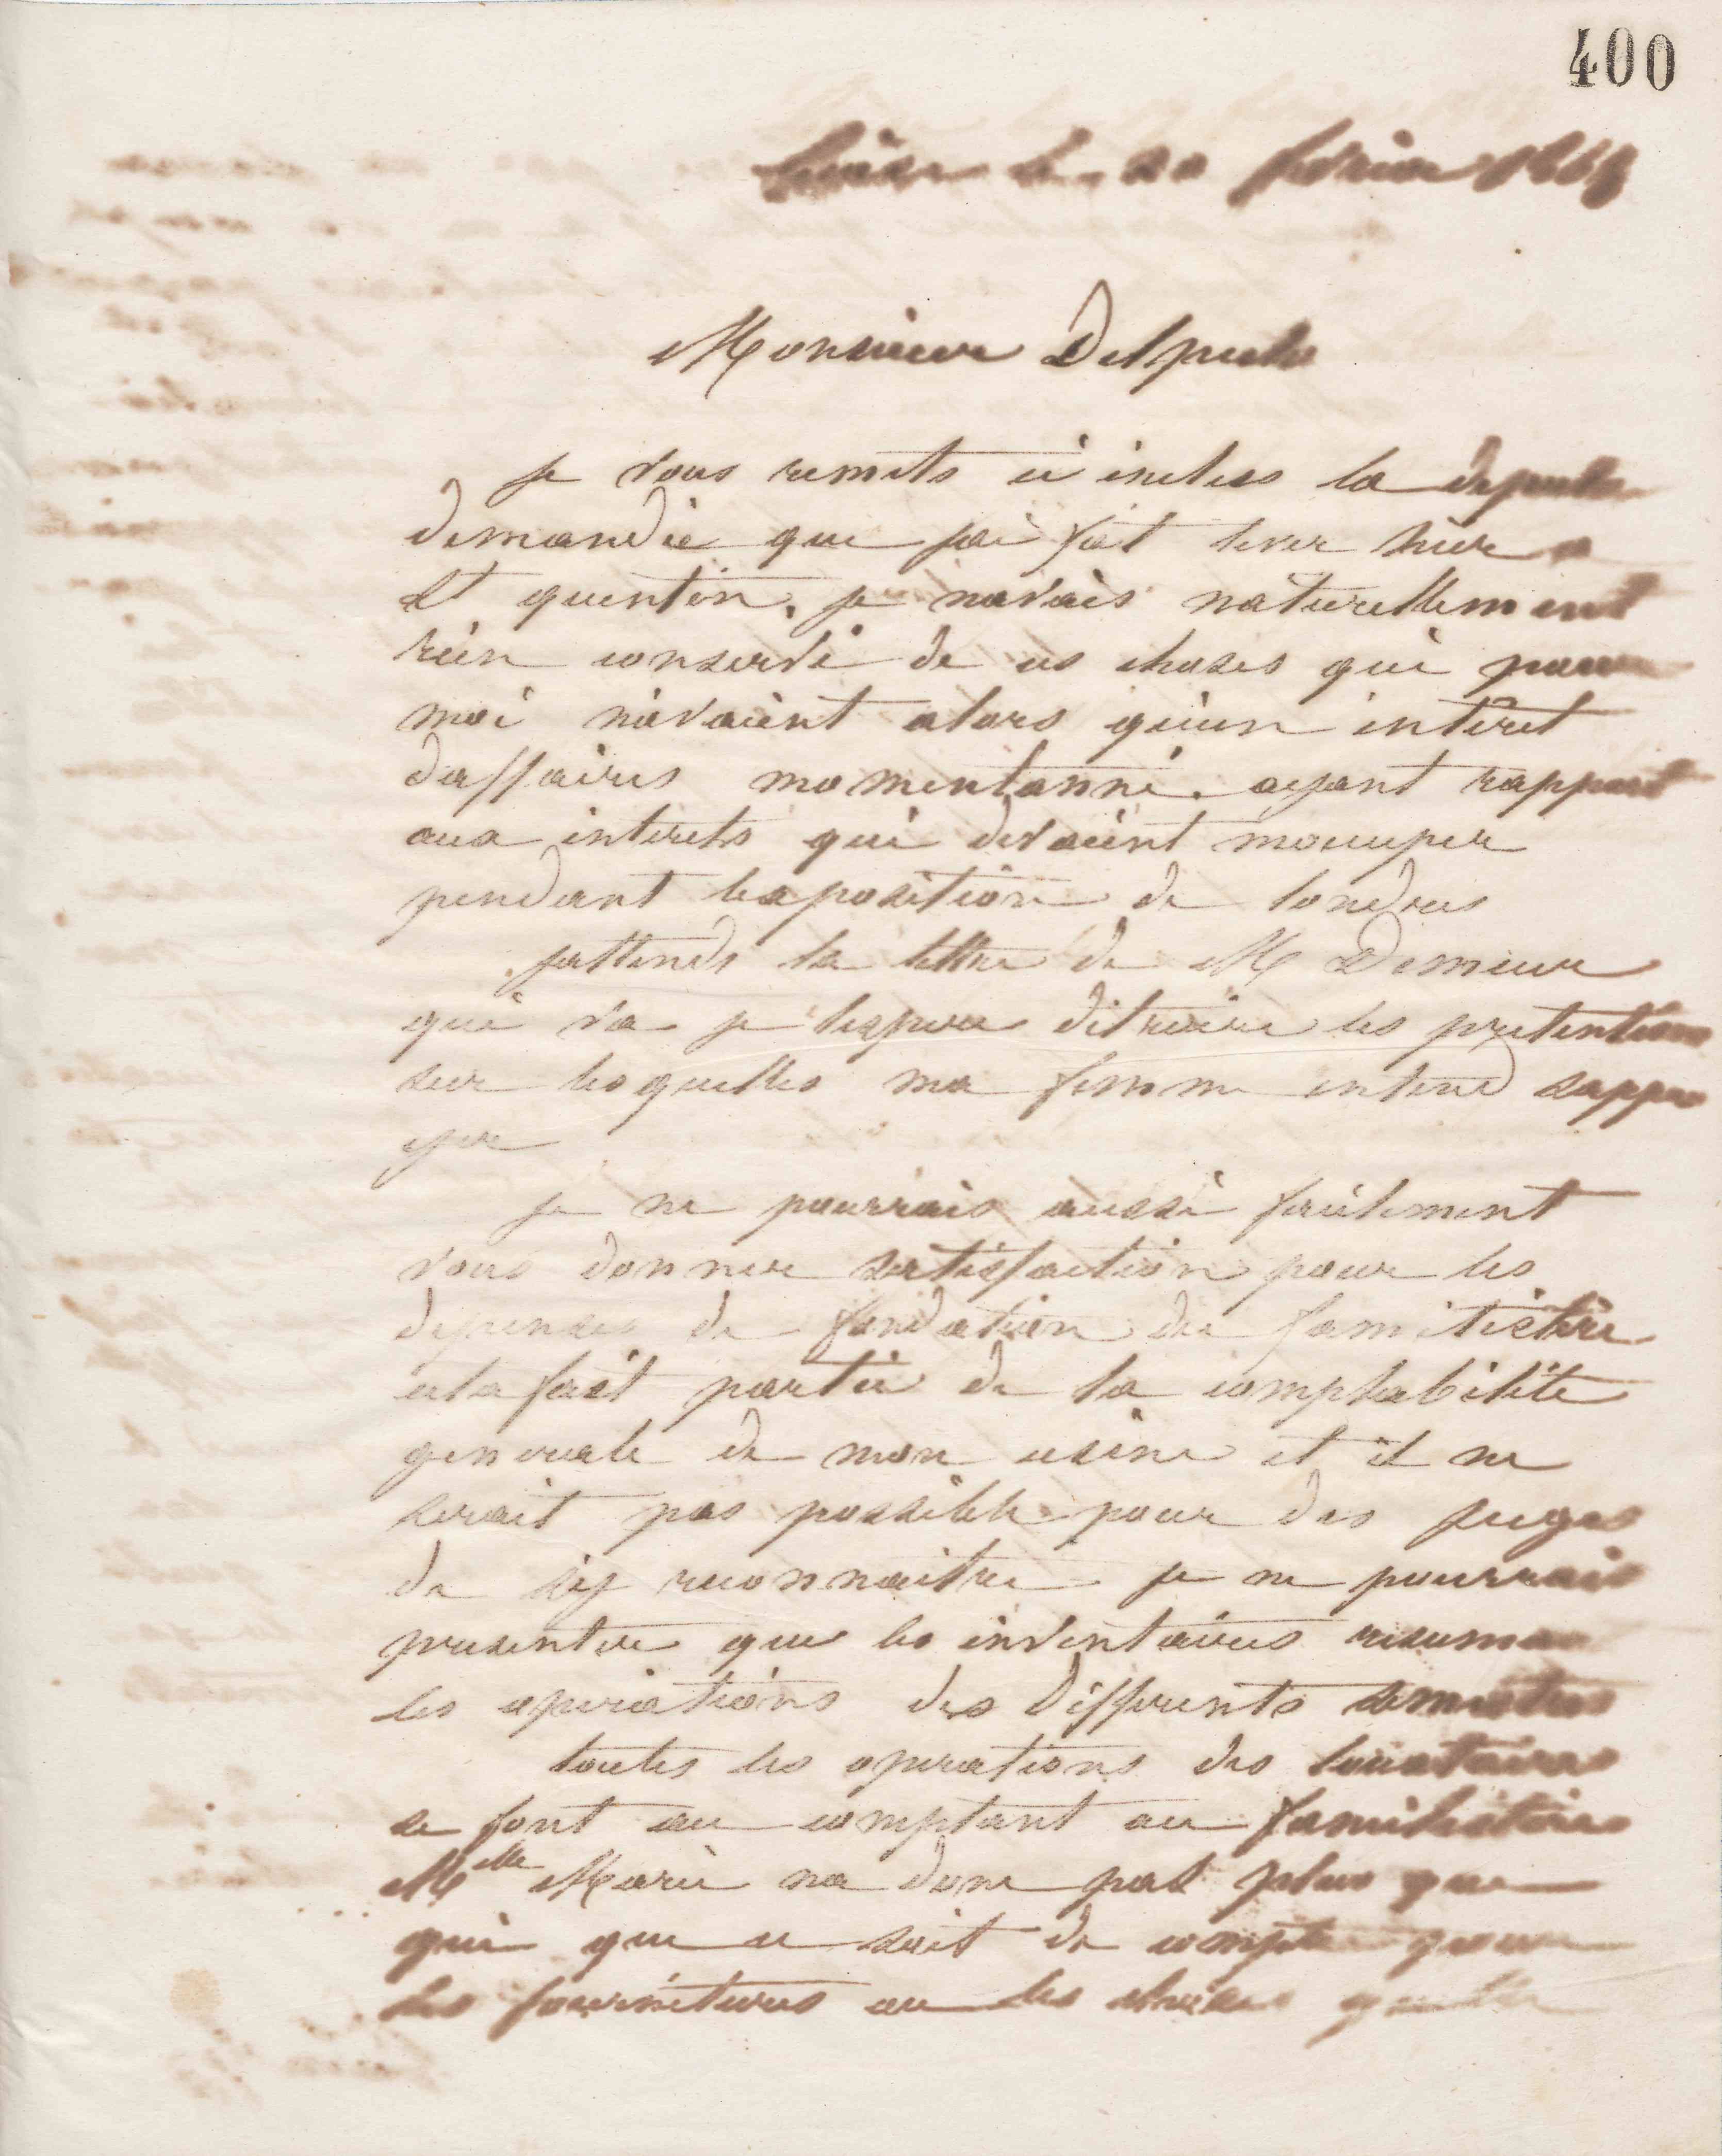 400
le 20 février
Monsieur Delpech
je vous remets ci inclus la depeche
demandée que jai fait lever hier a
St quentin. je navais naturellement
rien conservé de ces choses qui pour
moi n'avaient alors qu'un intéret
daffaires momentanné. ayant rapport
aux interets qui devaient moccuper
pendant lexposition de londres
jattends la lettre de M Demeur
qui va je lespere détruire les pretentions
sur lesquelles ma femme entend sappu
yer
je ne pourrais aussi facilement
vous donner satisfaction pour les
depenses de fondation du familistère
cela fait partie de la comptabilité
generale de mon usine et il ne
serait pas possible pour des juges
de sy reconnaitre je ne pourrais
presenter que les inventaires
les opérations des différents
toutes les operations des locataires
se font au comptant au familistère
Mlle Marie na donc pas plus que
qui que ce soit de compte pour
les fournitures ou les choses quelle